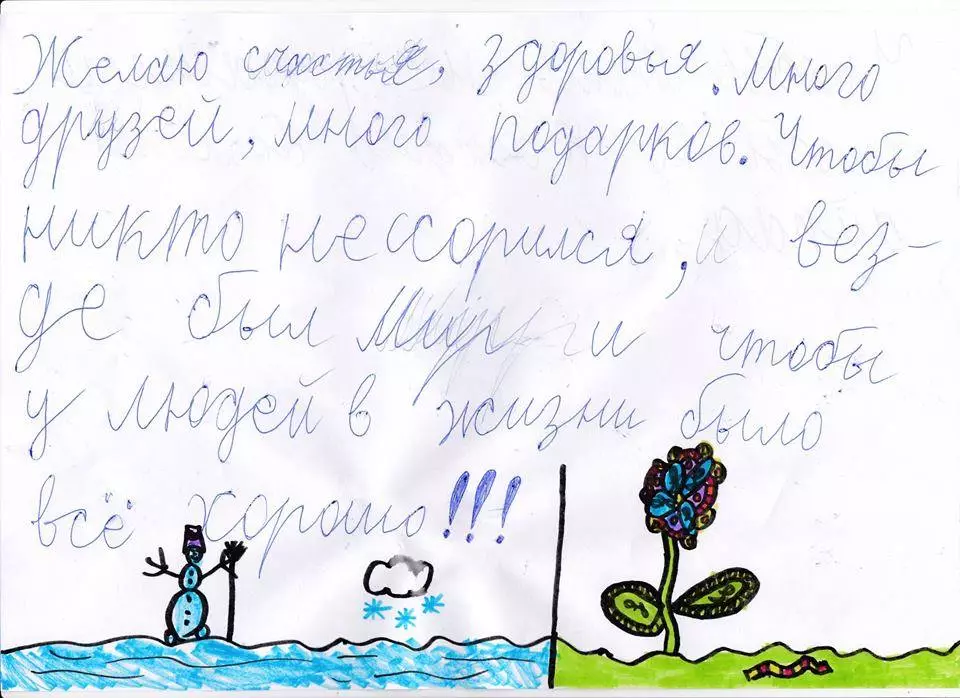 Желаю счастья, здоровья. Много
друзей, много подарков. Чтобы
никто не ссорился, и вез-
де был мир и чтобы
у людей в жизни было
всё хорошо!!!